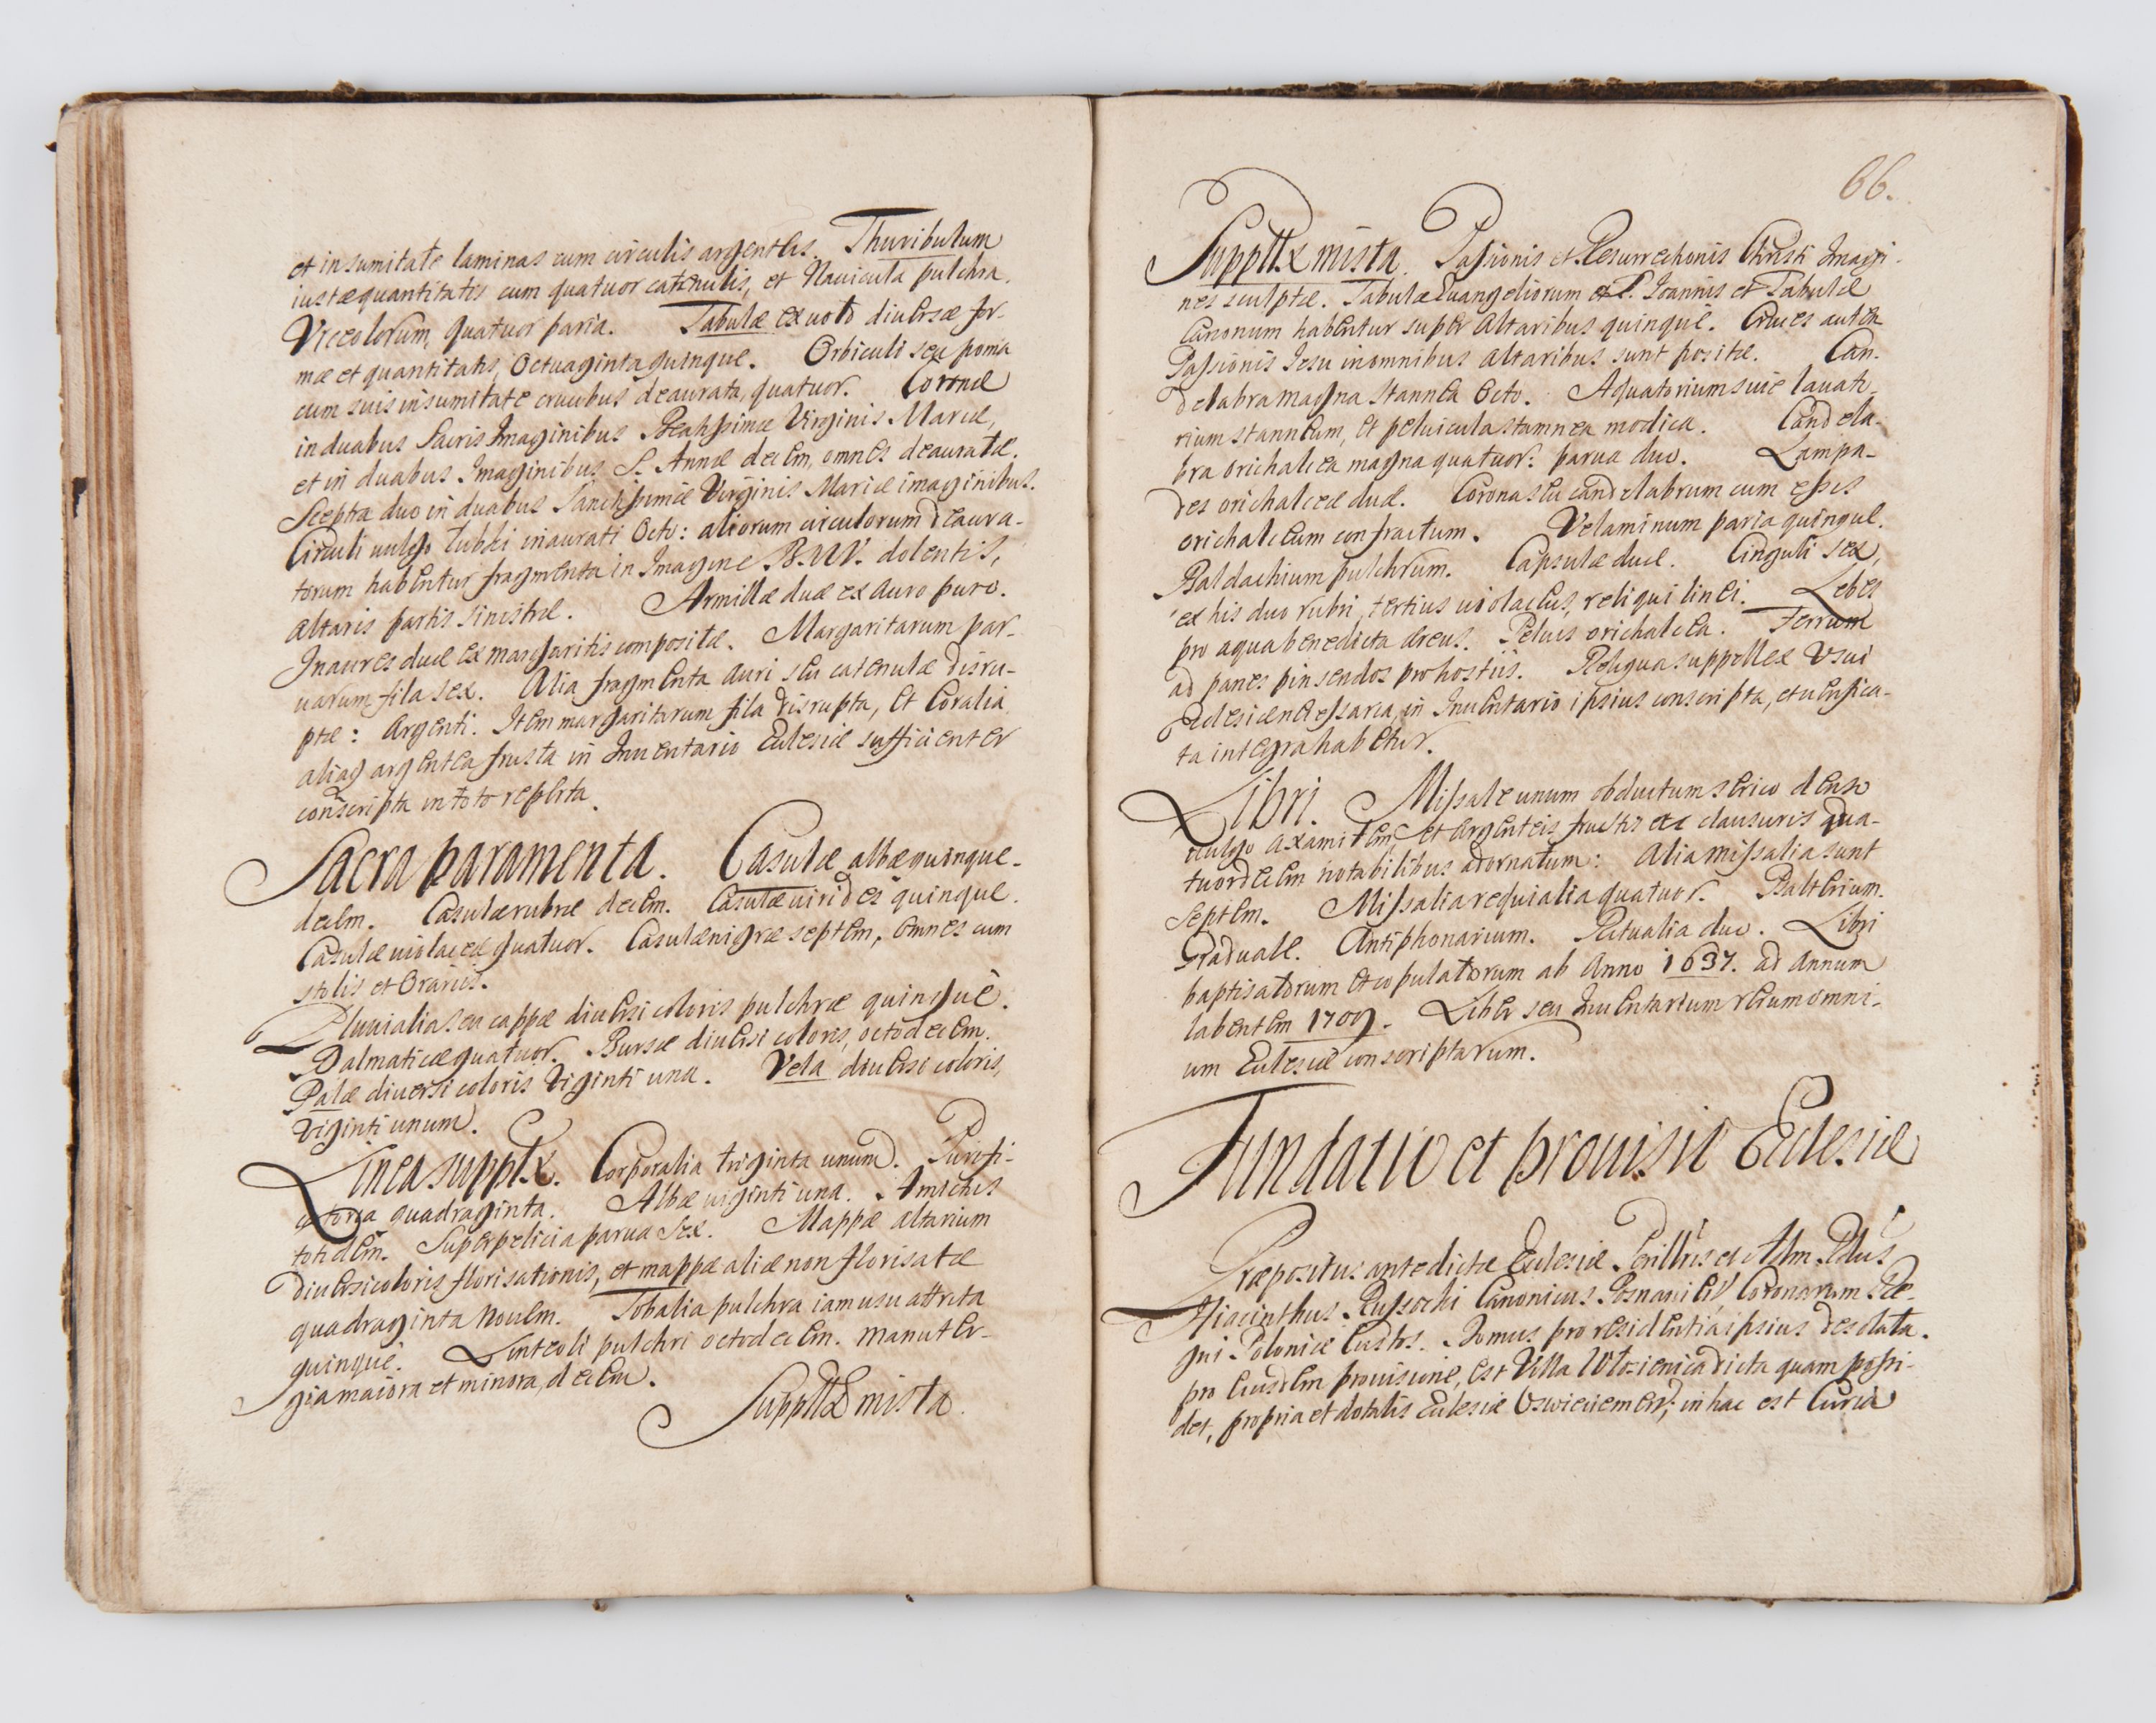 et in sumitate laminas cum circulis argenteis. Thuribulum
iustæ quantitatis cum quatuor catenulis, et Nauicula pulchra.
Vrceolorum, quatuor paria. Tabulæ ex uoto diuersæ for-
mæ et quantitatis, Octuaginta quinque. Orbiculi seu poma
cum suis in sumitate crucibus deaurata, quatuor. Coronæ
in duabus Sacris Imaginibus Beatissimæ Virginis Mariæ,
et in duabus Imaginibus S. Annæ decem, omnes deauratæ.
Sceptra duo in duabus Sanctissimæ Virginis Mariæ imaginibus.
Circuli uulgo inaurati Octo: aliorum circulorum deaura-
torum habentur fragmenta in Imagine B.M.V. dolentis,
altaris partis sinistræ. Armillæ duæ ex auro puro.
Inaures duæ ex margaritis compositæ. Margaritarum par-
uarum fila sex. Alia fragmenta auri seu catenulæ disru-
ptæ: Argenti. Item margaritarum fila disrupta, et Coralia
aliaq argentea frusta in Inuentario Eclesiæ sufficienter
conscripta in toto reperta.
Sacra paramenta. Casulæ albæ quinque-
decem. Casulæ rubræ decem. Casulæ uirides quinque.
Casulæ uiolaceæ quatuor. Casulæ nigræ septem, omnes cum
stolis et Orariis.
Pluuialia seu cappæ diuersi coloris pulchræ quinque.
Dalmaticæ quatuor. Bursæ diuersi coloris, octodecem.
Palæ diuersi coloris Viginti una. Vela diuersi coloris,
Viginti unum.
Linea supplex. Corporalia triginta unum. Purifi-
catoria quadraginta. Albæ uiginti una. Amictus
totidem. Superpelicia parua Sex. Mappæ altarium
diuersi coloris florisationis, et mappæ aliæ non florisatæ
quadraginta Nouem. Tobalia pulchra iam usu attrita
quinque. Linteoli pulchri octodecem. Manuter-
gia maiora et minora, decem.
Suppllex mista.
66.
Suppllex mista. Passionis et Resurrectionis Christi Imagi-
nes sculptæ. Tabulæ Euangeliorum S. Joannis et Tabulæ
Canonum habentur super Altaribus quinque. Cruces autem
Passionis Jesu in omnibus altaribus sunt positæ. Can-
delabra magna stannea Octo. Aquatorium siue lauato-
rium stanneum, et peluicula stamnea modica. Candela-
bra orichalcea magna quatuor: parua duo. Lampa-
des orichalceæ duæ. Corona seu candelabrum cum
orichalceum confractum. Velaminum paria quinque.
Baldachium pulchrum. Capsulæ duæ. Cinguli sex,
ex his duo rubri, tertius uiolaceus, reliqui linei. Lebes
pro aqua benedicta æreus. Peluis orichalcea. Ferrum
ad panes pinsendos pro hostiis. Reliqua suppellex Vsui
Eclesiæ necessaria, in Inuentario ipsius conscripta, et uerifica-
ta integra habetur.
Libri. Missale unum obductum serico denso
uulgo axamitem et argenteis frustis et clausuris qua-
tuordecem notabilibus adornatum: Alia missalia sunt
Septem. Missalia requialia quatuor. Psalterium.
Graduale. Antiphonarium. Ritualia duo. Libri
baptisatorum et copulatorum ab Anno 1637. ad Annum
labentem 1709. Liber seu Inuentarium rerum omni-
um Eclesiæ conscriptarum.
Fundatio et prouisio Eclesiæ
Præpositus antedictæ Eclesiæ Perillris et Adm. Rdus
Hiacinthus Russocki Canonicus Posnaniensis Coronarum Re-
gni Poloniæ Custos. Domus pro residentia ipsius desolata.
pro eiusdem prouisione, est Villa Włozienica dicta quam possi-
det, propria et dotalis Eclesiæ in hac est Curia